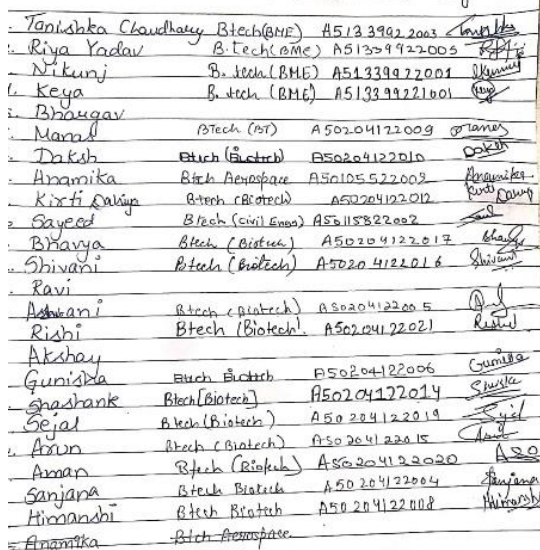 Tanishka Chaudhary Btech(BME) A51339922003
Riya Yadav B.tech(BME) A51339922005
Nikunj B.tech(BME) A51339922001 Nikunj
Keya B.tech(BME) A513399221001 Keya
Bhargav
Manas BTech (BT) A50204122009 Manas
Daksh Btech (Biotech) A50204122010 Daksh
Anamika Btch Aerospace A50105522009 Anamika
Kirti Dahiya Btech (Biotech) A50204122012 Kirti
Sayeed Btech (Civil Engg) A50115822002
Bhavya Btech (Biotech) A50204122017 Bhavya
Shivani Btech (Biotech) A50204122016 Shivani
Ravi
Ashwani Btech (Biotech) A50204122005
Rishi Btech (Biotech). A50204122021
Akshay
Gunisha Btech Biotech A50204122006 Gunisha
Shashank Btech[Biotech] A50204122014
Sejal Btech(Biotech) A50204122019
Arun Btech (Biotech) A50204122015
Aman Btech (Biotech) A50204122020
Sanjana Btech Biotech A50204122004 Sanjana
Himanshi Btech Biotech A50204122008 Himanshi
Anamika Btch Aerospace